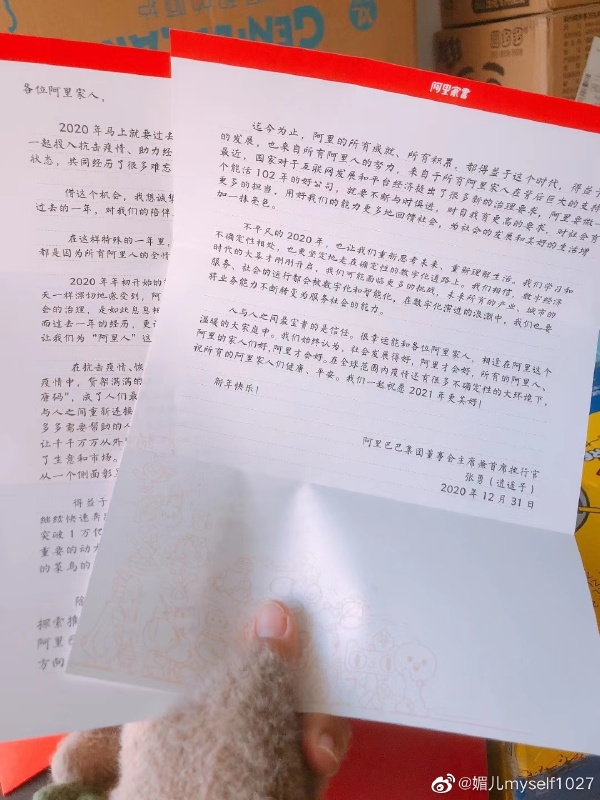 GENTLE
各位阿里家人，
2020年马上就要过去
一起投入抗击疫情、助力经
状态，共同经历了很多难忘
借这个机会，我想诚挚
过去的一年，对我们的陪伴、
在这样特殊的一年里，
都是因为所有阿里人的全情
2020年年初开始的
天一样深切地感受到，阿
会的治理，是如此息息相
而过去一年的经历，更让
让我们为“阿里人”这
在抗击疫情、恢
疫情中，货架满满的
康码”，成了人们最
与人之间重新连接
多多需要帮助的人
让千千万万从外
了生意和市场。
从一个侧面彰显
得益于
继续快速奔跑
突破1万亿
重要的动力
的菜鸟的
探索推
阿里巴
方向
阿里家书
迄今为止，阿里的所有成就、所有积累，都得益于这个时代，得益于
的发展，也来自所有阿里人的努力，来自于所有阿里家人在背后巨大的支持
最近，国家对于互联网发展和平台经济提出了很多新的治理要求，阿里要做一
个能活102年的好公司，就要不断与时偕进，对自我有更高的要求，对社会有
更多的担当，用好我们的能力更多地回馈社会，为社会的发展和美好的生活增
加一抹亮色。
不平凡的2020年，也让我们重新思考未来、重新理解生活。我们学习和
不确定性相处，也更坚定地走在确定性的数字化道路上。我们相信，数字经济
时代的大幕才刚刚开启，我们可能面临更多的挑战，未来所有的产业、城市的
服务、社会的运行都会被数字化和智能化，在数字化演进的浪潮中，我们也要
将业务能力不断转变为服务社会的能力。
人与人之间最宝贵的是信任。很幸运能和各位阿里家人，相逢在阿里这个
温暖的大家庭中。我们始终认为，社会发展得好，阿里才会好，所有的阿里人、
阿里的家人们好，阿里才会好。在全球范围内疫情还有很多不确定性的大环境下，
祝所有的阿里家人们健康、平安。我们一起祝愿2021年更美好！
新年快乐！
阿里巴巴集团董事会主席兼首席执行官
张勇（逍遥子）
2020年12月31日
@媚儿myself1027